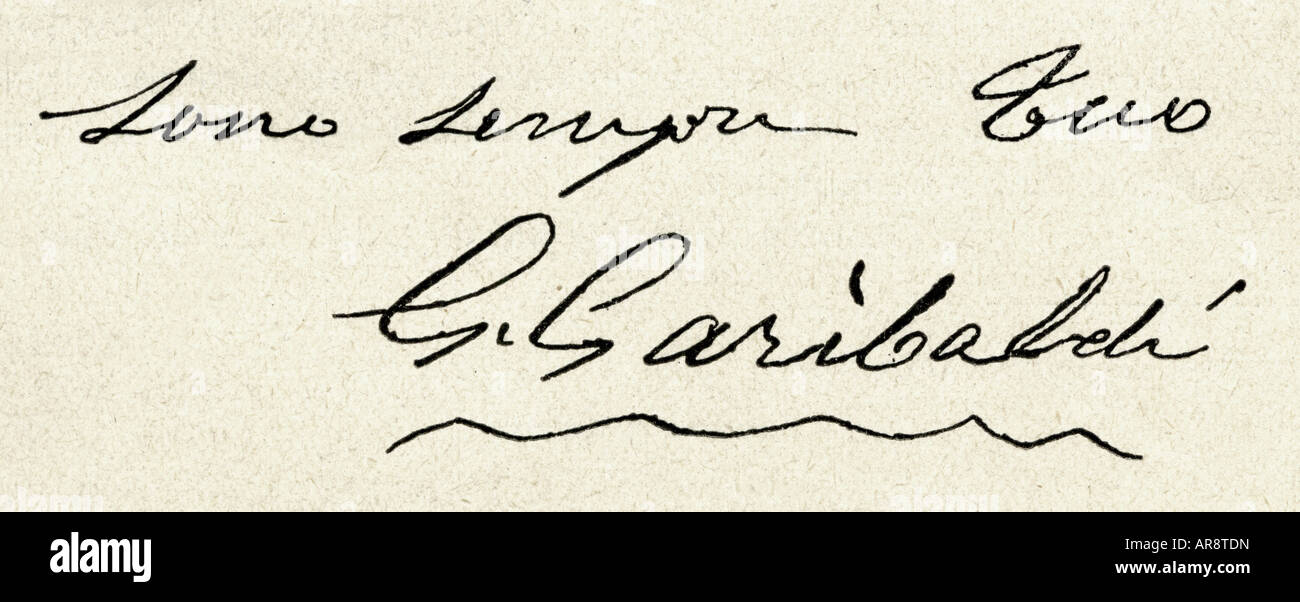 Sono sempre Tuo
G. Garibaldi
alamy
Image ID: AR8TDN
www.alamy.com